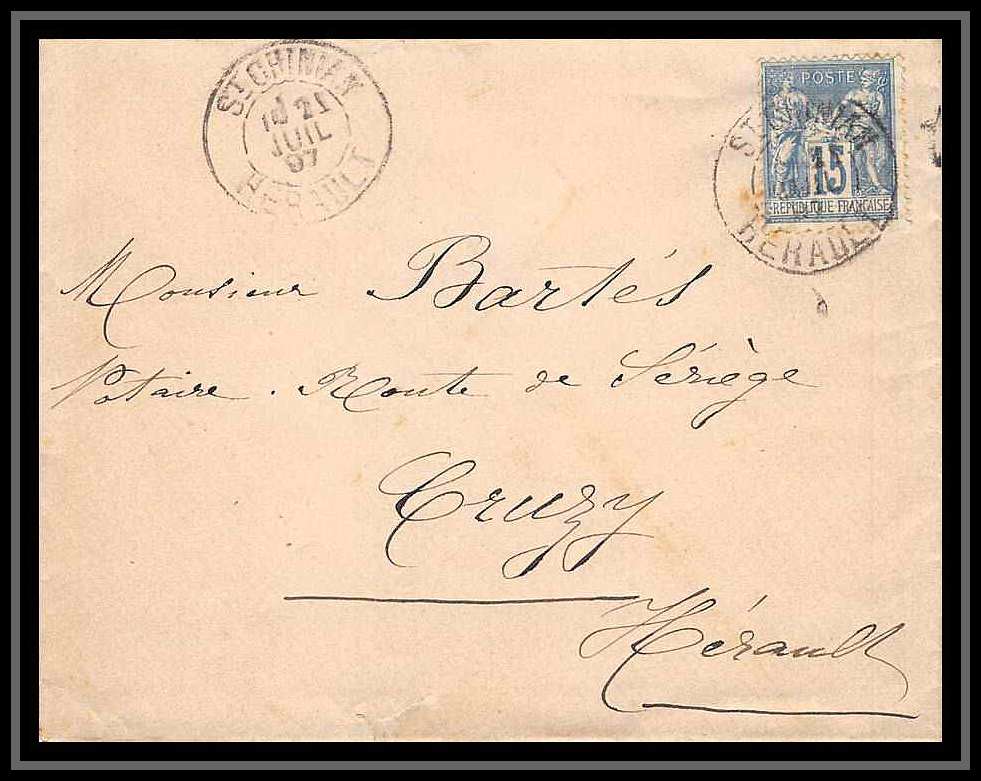 ST CHINIAN
21
JUIL
97
HERAULT
POSTE
15
REPUBLIQUE FRANÇAISE
ST CHINIAN
HERAULT
Monsieur Bartès
Notaire. Route de Sériège
Cruzy
Hérault